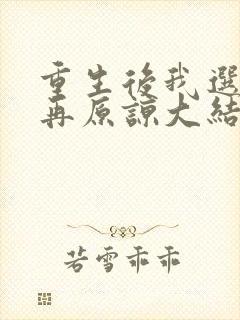 重生後我選
再原諒大結
若雪乖乖